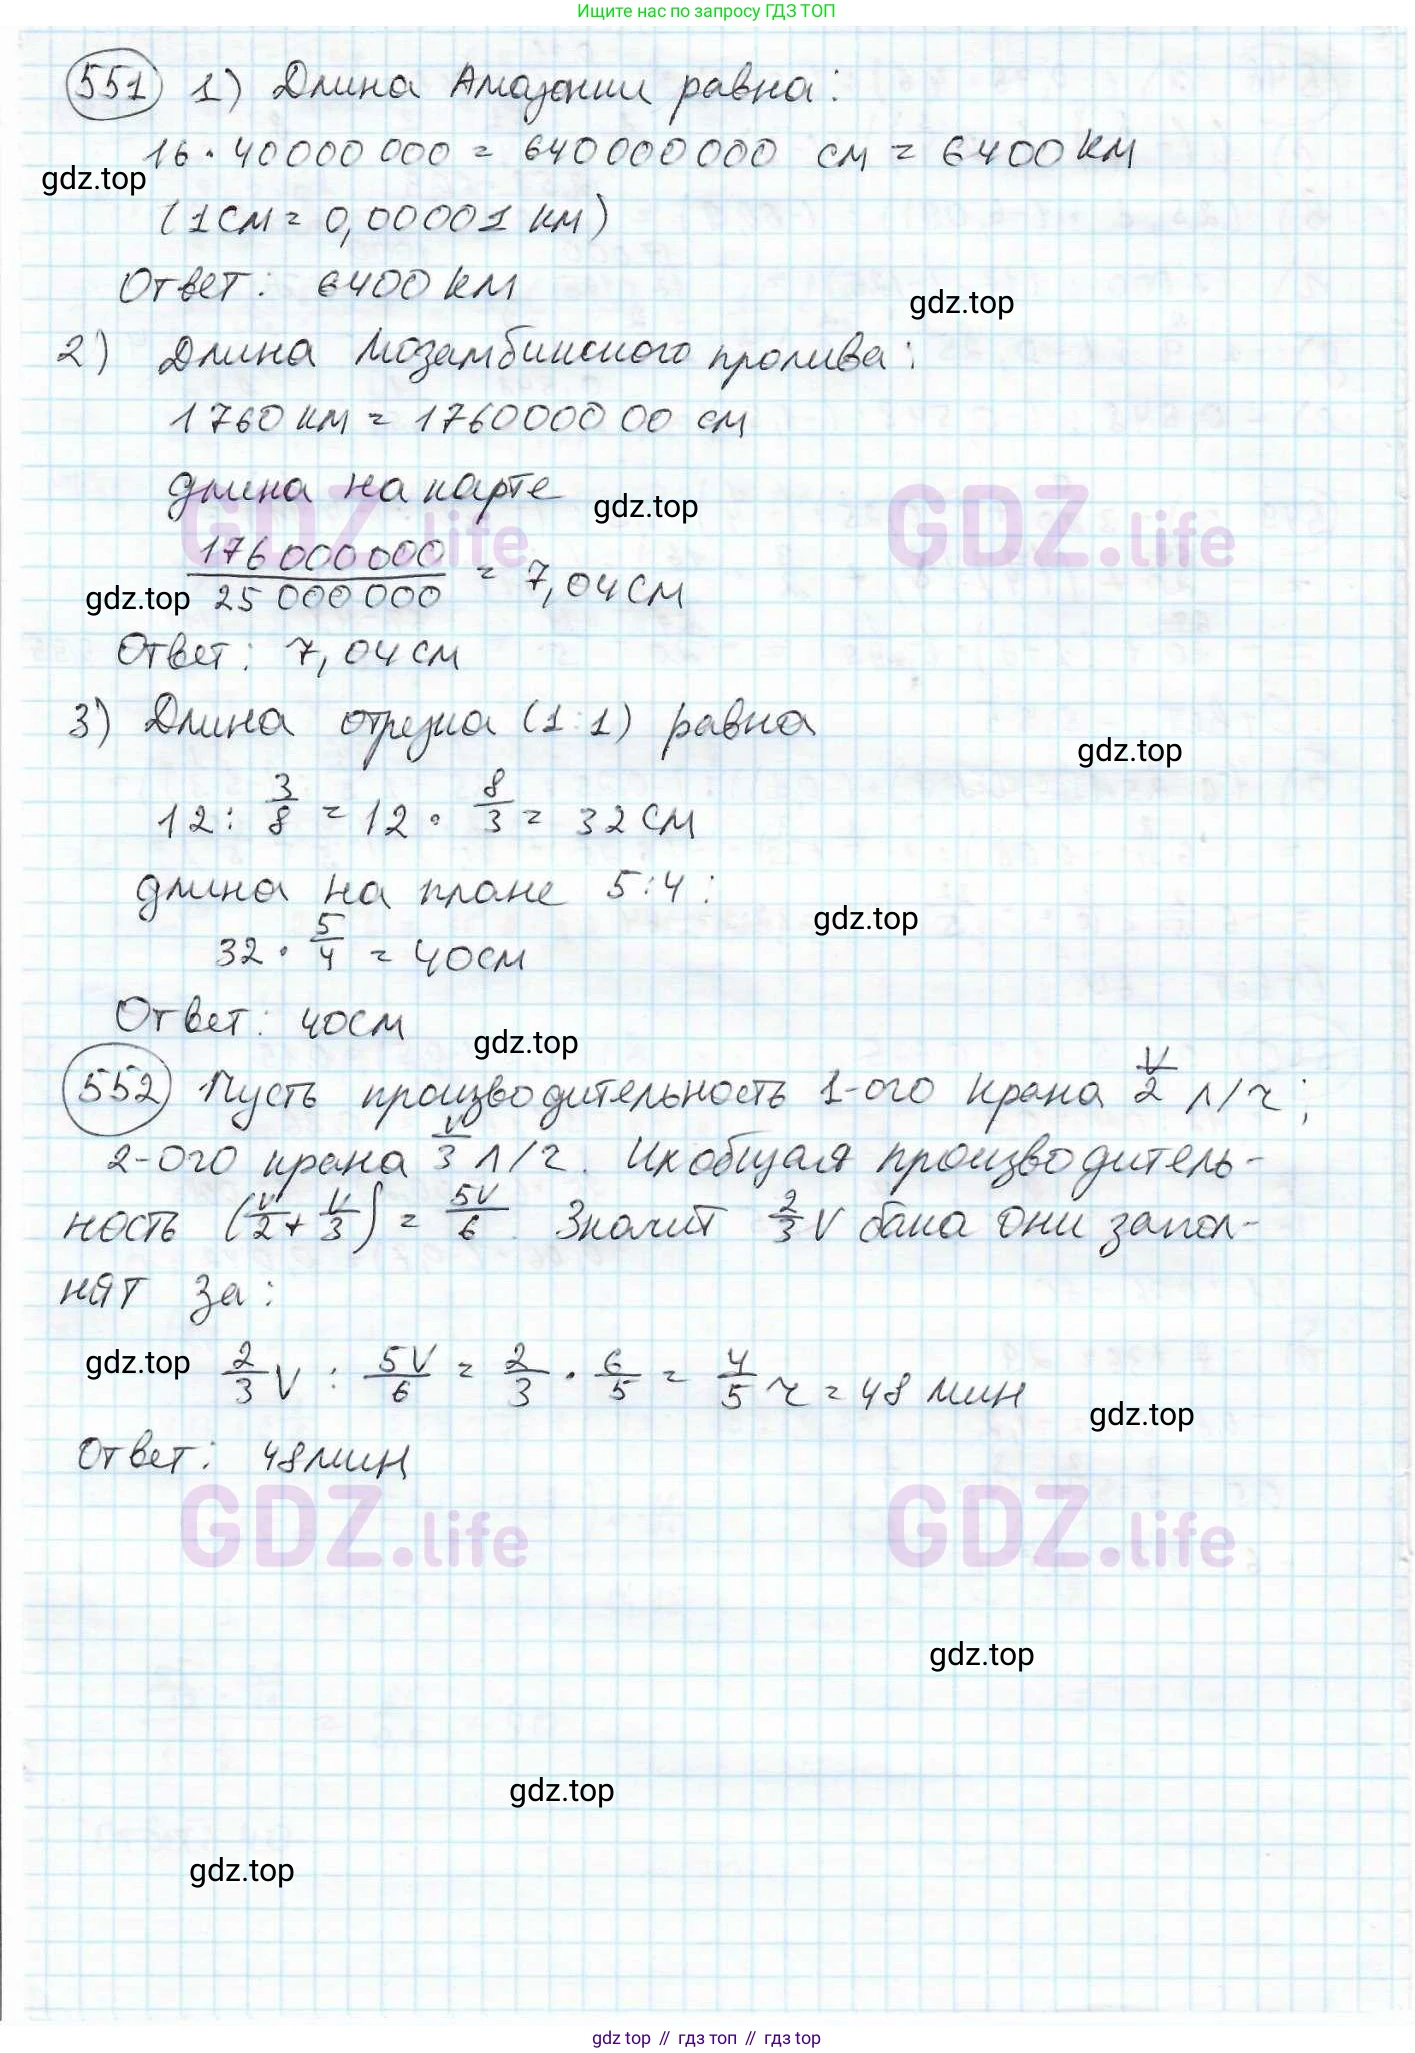 Ищите нас по запросу ГДЗ ТОП
551 1) Длина Амазонки равна:
16 · 40000 000 = 640000000 см = 6400 км
gdz.top
(1 см = 0,00001 км)
Ответ: 6400 км
gdz.top
2) Длина Мозамбикского пролива:
1760 км = 176000000 см
длина на карте
gdz.top
GDZ.life GDZ.life
176 000 000 / 25 000 000 = 7,04 см
gdz.top
Ответ: 7,04 см
3) Длина отрезка (1:1) равна
gdz.top
12 : 3/8 = 12 · 8/3 = 32 см
длина на плане 5:4:
gdz.top
32 · 5/4 = 40 см
Ответ: 40 см
gdz.top
552 Пусть производительность 1-ого крана V/2 л/ч;
2-ого крана V/3 л/ч. Их общая производитель-
ность (V/2 + V/3) = 5V/6. Значит 2/3 V бака они запол-
нят за:
gdz.top
2/3 V : 5V/6 = 2/3 · 6/5 = 4/5 ч = 48 мин
gdz.top
Ответ: 48 мин
GDZ.life GDZ.life
gdz.top
gdz.top
gdz.top
gdz top // гдз топ // gdz top